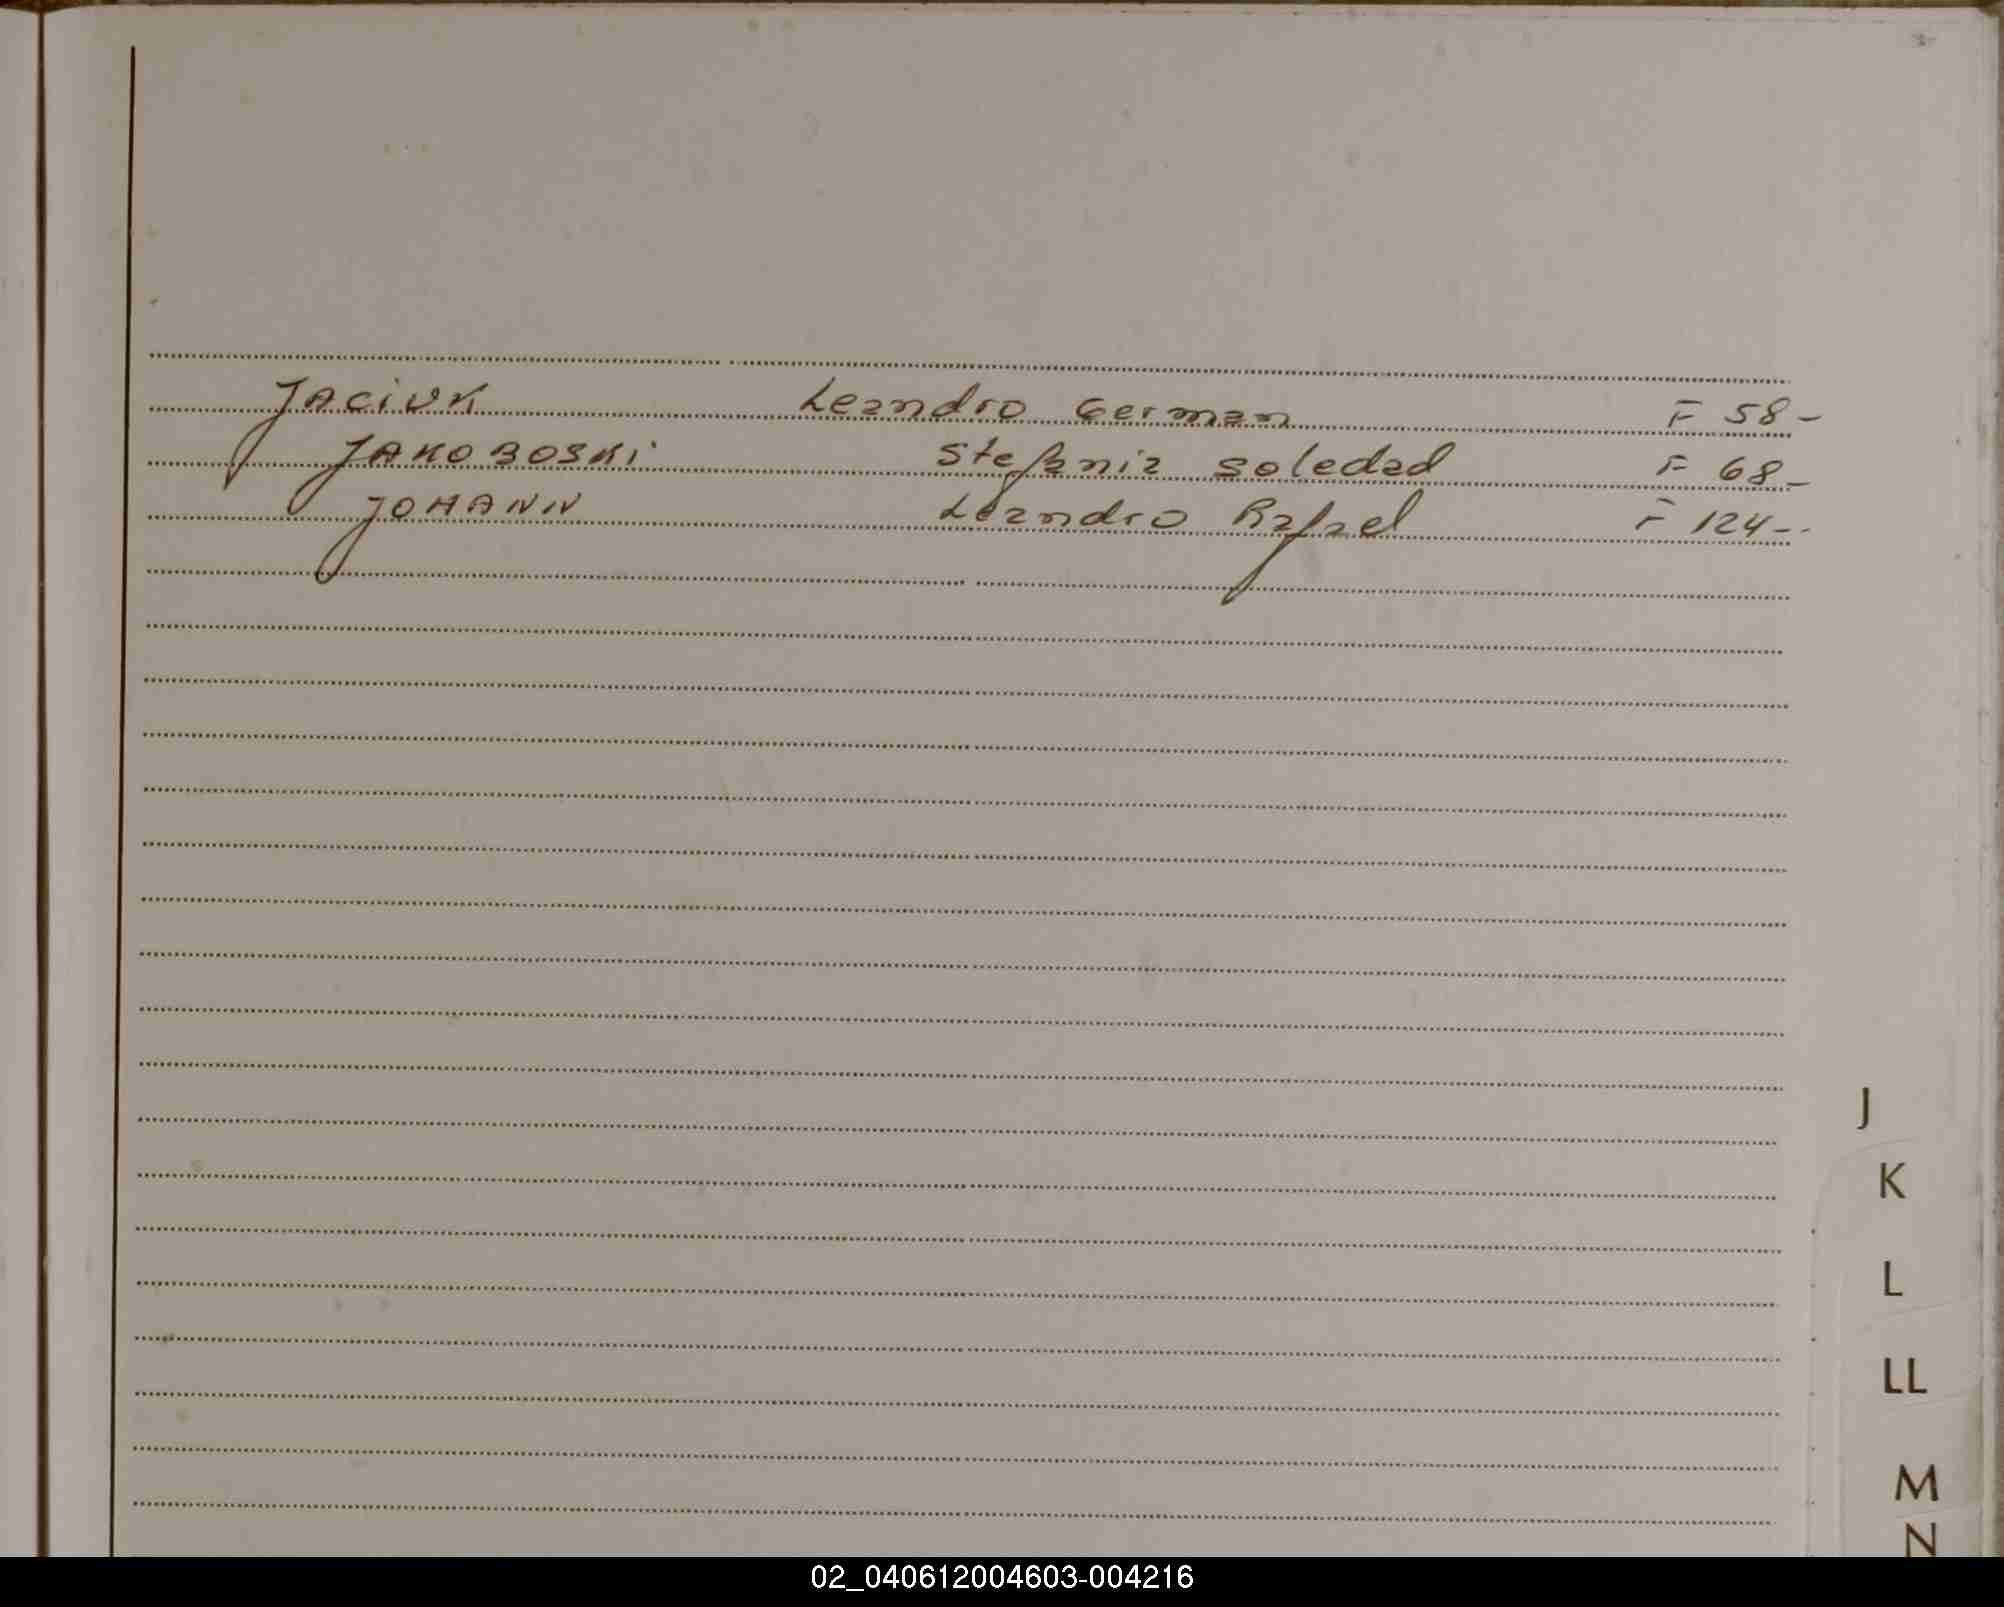 JACIUK Leandro German F 58-
JAKOBOSKI Stefania Soledad F 68-
JOHANN Leandro Rafael F 124-
J
K
L
LL
M
N
02_040612004603-004216